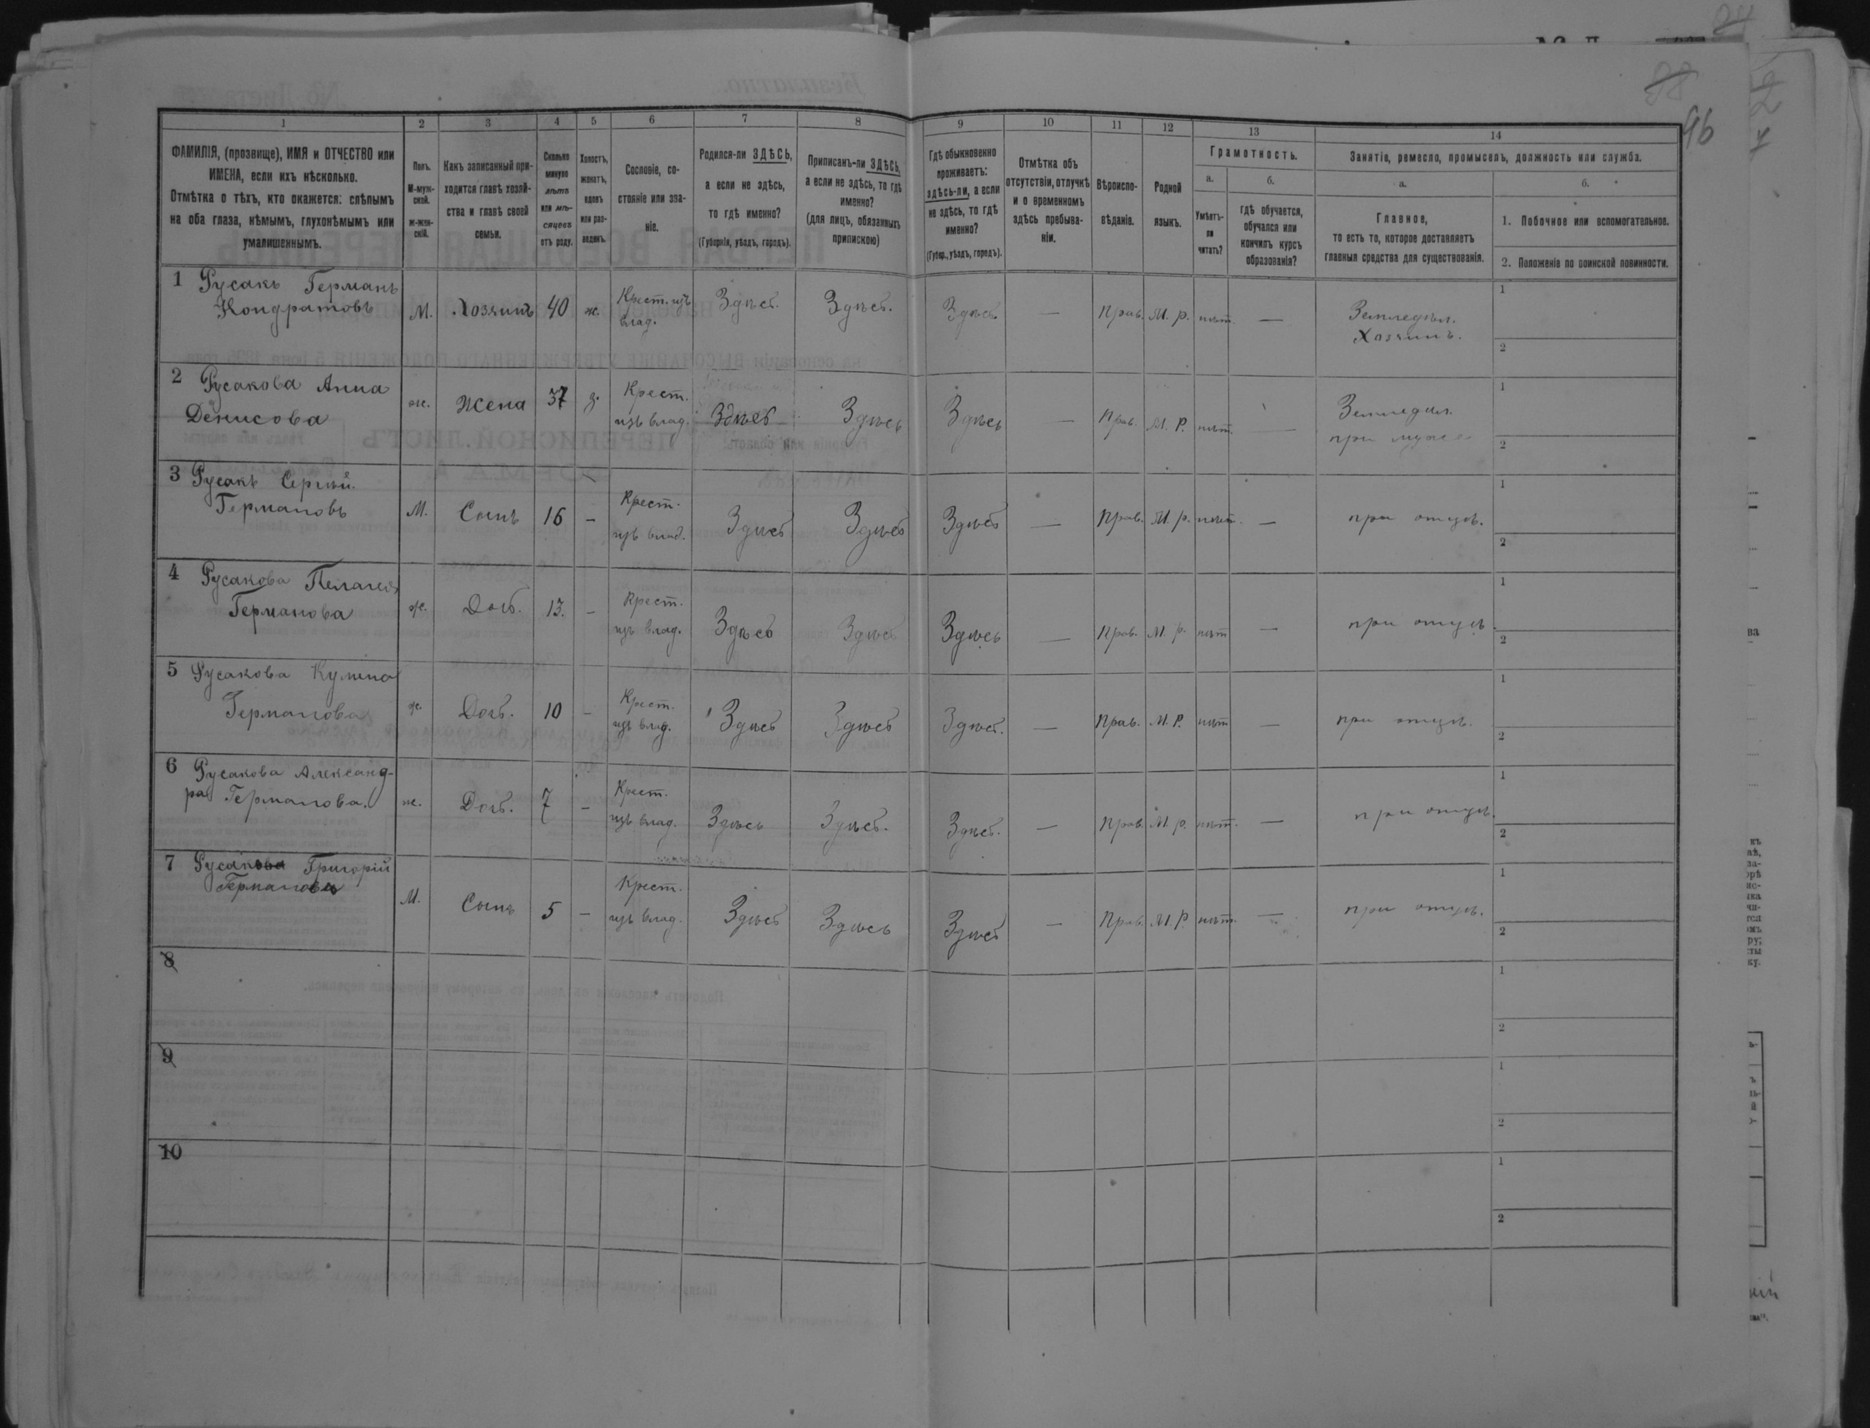 94
98
96
1 2 3 4 5 6 7 8 9 10 11 12 13 14
ФАМИЛІЯ, (прозвище), ИМЯ и ОТЧЕСТВО или
ИМЕНА, если ихъ нѣсколько.
Отмѣтка о тѣхъ, кто окажется: слѣпымъ
на оба глаза, нѣмымъ, глухонѣмымъ или
умалишеннымъ.
Полъ.
М-муж-
ской.
ж-жен-
скій.
Какъ записанный при-
ходится главѣ хозяй-
ства и главѣ своей
семьи.
Сколько
минуло
лѣтъ
или мѣ-
сяцевъ
отъ роду.
Холостъ,
женатъ,
вдовъ
или раз-
веденъ.
Сословіе, со-
стояніе или зва-
ніе.
Родился-ли ЗДѢСЬ,
а если не здѣсь,
то гдѣ именно?
(Губернія, уѣздъ, городъ).
Приписанъ-ли ЗДѢСЬ,
а если не здѣсь, то гдѣ
именно?
(для лицъ, обязанныхъ
припискою)
Гдѣ обыкновенно
проживаетъ:
здѣсь-ли, а если
не здѣсь, то гдѣ
именно?
(Губер., уѣздъ, городъ).
Отмѣтка объ
отсутствіи, отлучкѣ
и о временномъ
здѣсь пребыва-
ніи.
Вѣроиспо-
вѣданіе.
Родной
языкъ.
Грамотность.
а.
Умѣетъ-
ли
читать?
б.
гдѣ обучается,
обучался или
кончилъ курсъ
образованія?
Занятіе, ремесло, промыселъ, должность или служба.
а.
Главное,
то есть то, которое доставляетъ
главныя средства для существованія.
б.
1. Побочное или вспомогательное.
2. Положеніе по воинской повинности.
1 Русакъ Германъ
Кондратовъ
М. Хозяинъ 40 ж. Крест. изъ
влад. Здѣсь Здѣсь. Здѣсь — Прав. М. р. нѣт. — Земледѣл.
Хозяинъ. 1
2
2 Русакова Анна
Денисова
ж. Жена 37 з. Крест.
изъ влад. Здѣсь Здѣсь Здѣсь — Прав. М. Р. нѣт. — Земледѣл.
при мужѣ 1
2
3 Русакъ Сергѣй
Германовъ
М. Сынъ 16 — Крест.
изъ влад. Здѣсь Здѣсь Здѣсь — Прав. М. р. нѣт. — при отцѣ. 1
2
4 Русакова Пелагея
Германова
ж. Дочь. 13. — Крест.
изъ влад. Здѣсь Здѣсь Здѣсь — Прав. М. р. нѣт — при отцѣ. 1
2
5 Русакова Кулина
Германова
ж. Дочь. 10 — Крест.
изъ влад. Здѣсь Здѣсь Здѣсь. — Прав. М. Р. нѣт — при отцѣ. 1
2
6 Русакова Александ-
ра Германова.
ж. Дочь. 7 — Крест.
изъ влад. Здѣсь Здѣсь. Здѣсь. — Прав. М. р. нѣт. — при отцѣ. 1
2
7 Русакова Григорій
Германова
М. Сынъ 5 — Крест.
изъ влад. Здѣсь Здѣсь Здѣсь — Прав. М. Р. нѣт. — при отцѣ. 1
2
8 1
2
9 1
2
10 1
2